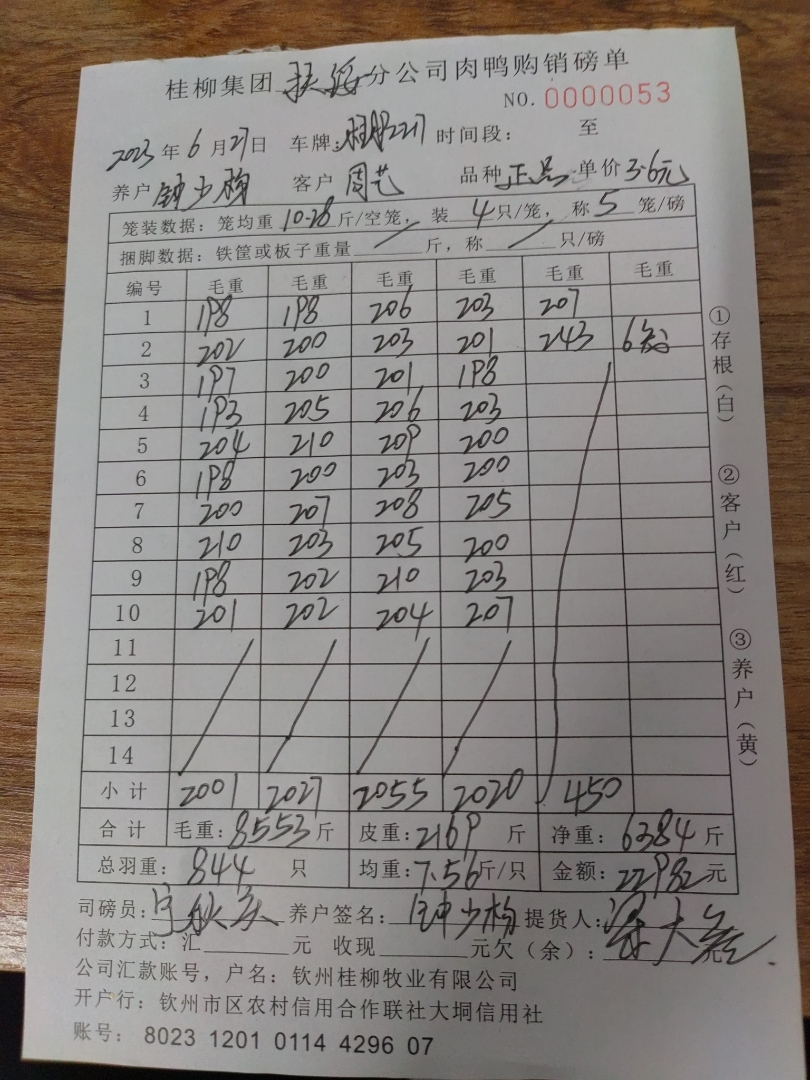 桂柳集团扶绥分公司肉鸭购销磅单
NO. 0000053
2023年6月27日 车牌:桂 2217 时间段: 至
养户 钟少梅 客户 周艺 品种 正品 单价 3.6元
笼装数据: 笼均重 10.28 斤/空笼, 装 4 只/笼, 称 5 笼/磅
捆脚数据: 铁筐或板子重量 / 斤, 称 / 只/磅
编号 毛重 毛重 毛重 毛重 毛重 毛重
1 198 198 206 203 207
2 202 200 203 201 243 6
3 197 200 201 198
4 193 205 206 203
5 204 210 209 200
6 198 200 203 200
7 200 207 208 205
8 210 203 205 200
9 198 202 210 203
10 201 202 204 207
11
12
13
14
小计 2001 2027 2055 2020 450
合计 毛重: 8553 斤 皮重: 2169 斤 净重: 6384 斤
总羽重: 844 只 均重: 7.56 斤/只 金额: 22982 元
司磅员: 养户签名: 钟少梅 提货人:
付款方式: 汇 元 收现 元欠(余): 元
公司汇款账号, 户名: 钦州桂柳牧业有限公司
开户行: 钦州市区农村信用合作联社大垌信用社
账号: 8023 1201 0114 4296 07
①存根(白)
②客户(红)
③养户(黄)